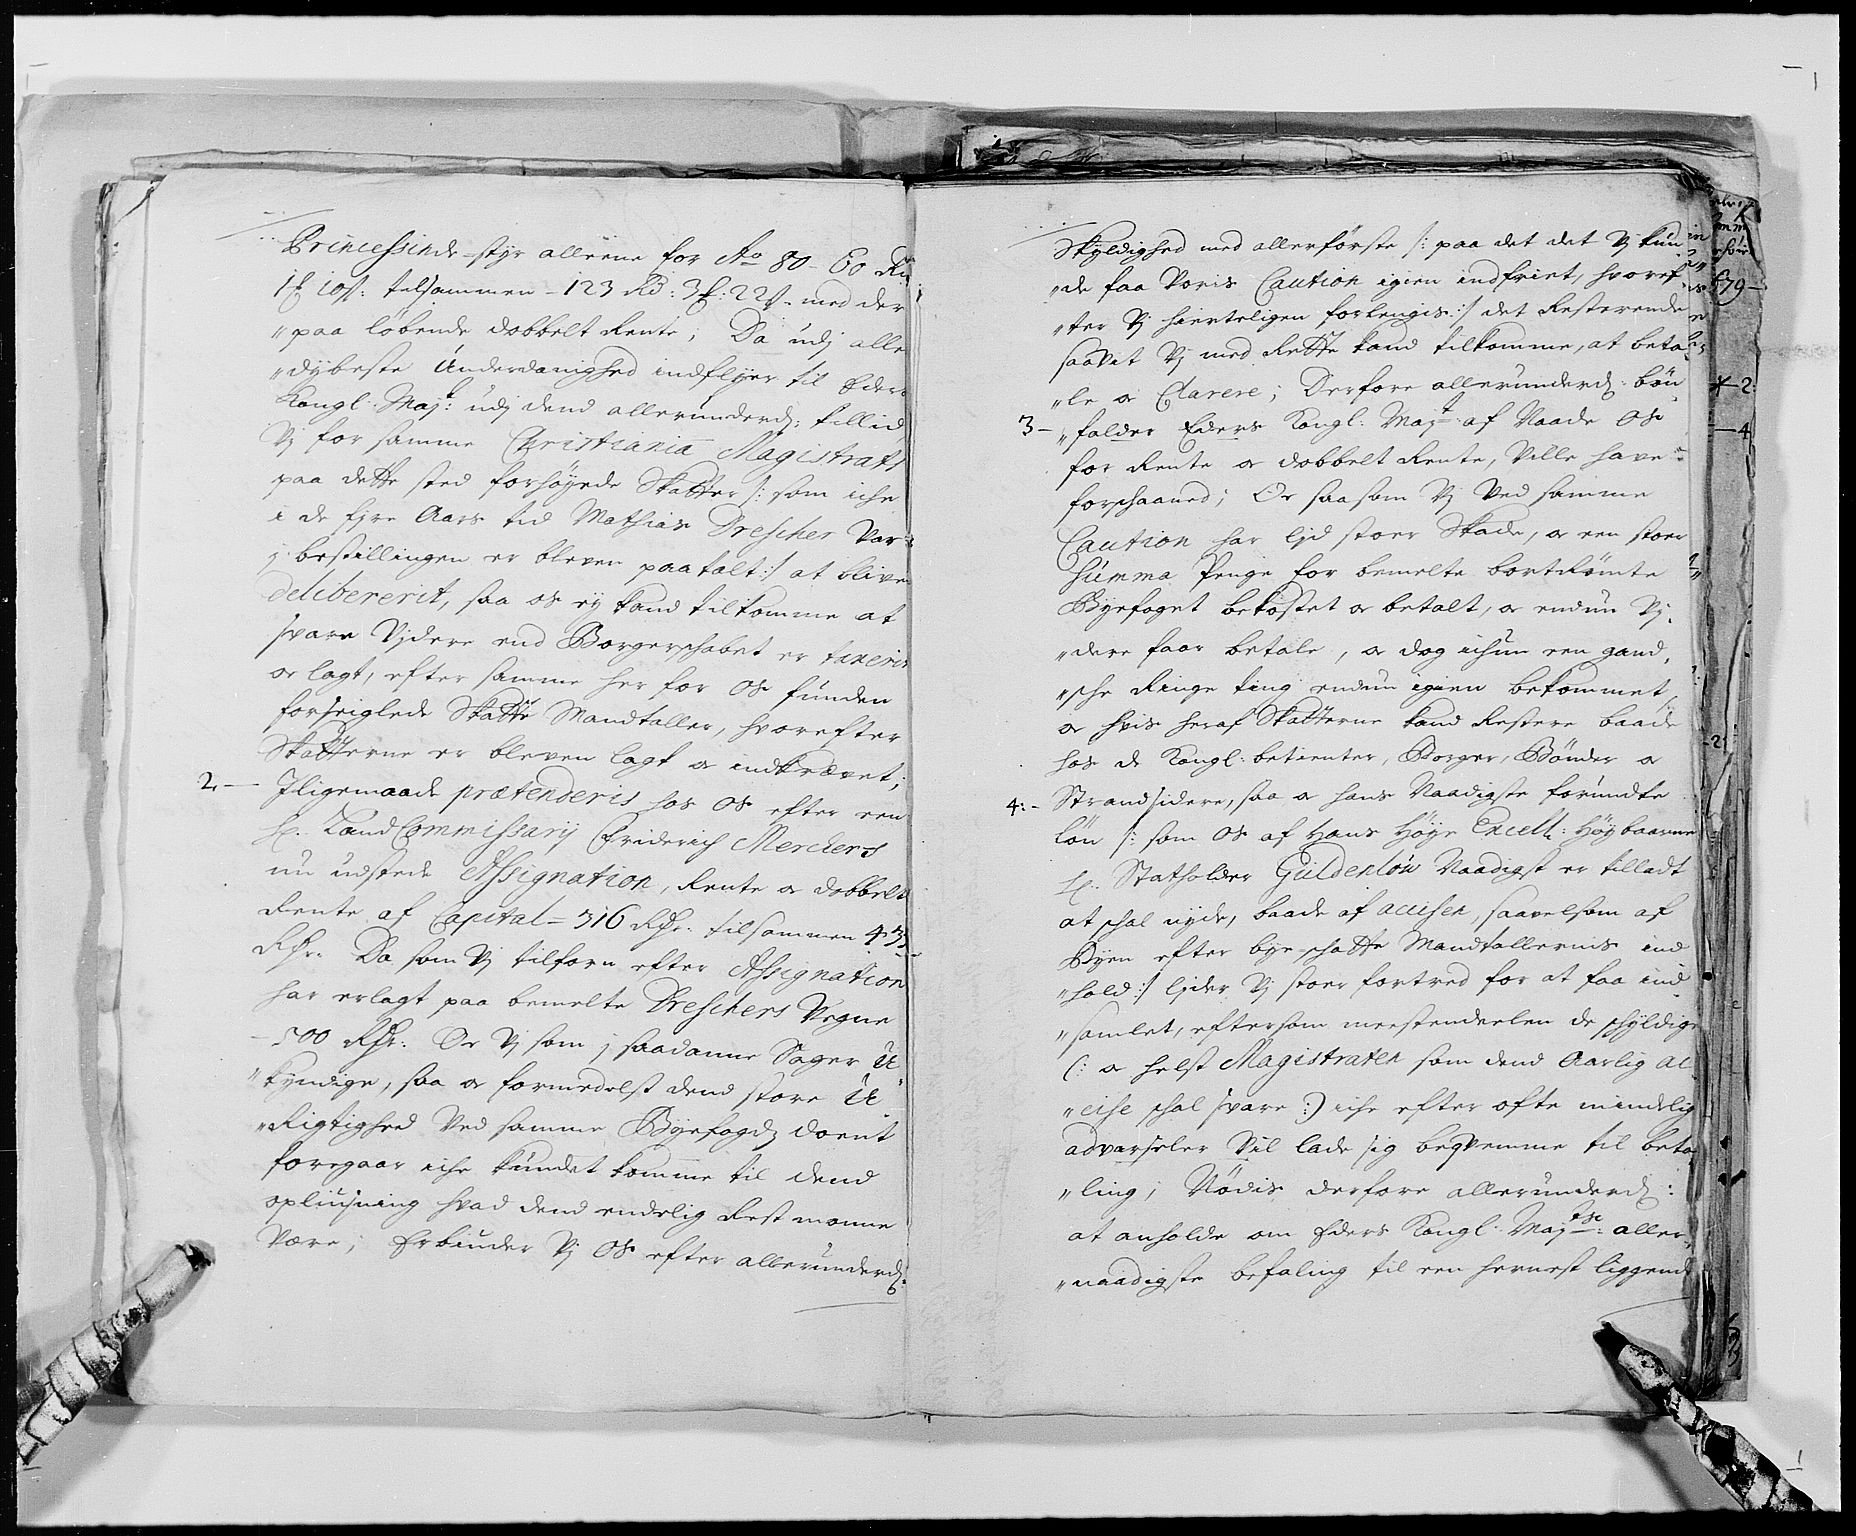 Princessinde-styr alleene for Ao 80 - 60 Rd
1 ꝑ 10 s: tilsammen - 123 Rd: 3 ꝑ: 22 s. med der
„paa løbende dobbelt Rente; Da udj aller
„dybeste Underdanighed indflyer til Eders
Kongl: Maj:t udj dend allerunderd: tillid
Vj for samme Christiania Magistrats
paa dette sted forhøyede Skatter /: som iche
i de fyre Aars tid Mathias Drescher Var
j bestillingen er bleven paatalt :/ at blive
delibererit, saa os ey kand tilkomme at
svare Vjdere end Borgerschabet er taxerit
oc lagt, efter samme her for Os funden
forseiglede Skatte Mandtaller, hvorefter
Skatterne er bleven lagt oc indkrævet;
2. — Jligemaade prætenderis hos Os efter een
Hr. Land Commissarij Friderich Merckers
nu udstede Assignation, Rente oc dobbelt
Rente af Capital = 316 Rdr. tilsammen 43
Rdr. Da som Vj tilforn efter Assignation
har erlagt paa bemelte Dreschers Vegne
- 500 Rdr. Oc Vj som j saadanne Sager U
„kyndige, saa oc formedelst dend store U
„Rigtighed Ved samme Byefogdj Doent
foregaar iche kundet komme til dend
opliusning hvad dend endelig Rest monne
Være; Erbiuder Vj Os efter allerunderd:
Skyldighed med allerførste /: paa det det Vj kun
„de faa Voris Caution igien indfriet, hvoref
„ter Vj hierteligen forlengis :/ det Resterende
saavit Vj med Rette kand tilkomme, at beta
„le oc Clarere; Derfore allerunderd: bøn
3 — „falder Eders Kongl: Maj:t af Naade Os
for Rente oc dobbelt Rente, Ville have
forschaaned; Oc saasom Vj Ved samme
Caution har lijd stoer Skade, oc een stoer
Summa Penge for bemelte bortrømte
Byefoget bekostet oc betalt, oc endnu Vj
„dere faar betale, oc dog ichun een gand
„sche Ringe ting endnu igien bekommet,
oc hvis heraf Skatterne kand Restere baade
hos de Kongl: betienter, Borger, Bønder oc
4: - Strandsidere, saa oc hans Naadigste forundte
løn /: som Os af Hans Høye Excell: Høybaarne
Hr. Statholder Güldenløw Naadigst er tilladt
at schal nyde, baade af accisen, saavelsom af
Byen efter bye-schatte Mandtallernis ind
„hold :/ lider Vj stoer fortred for at faa ind
„samlet, eftersom meestendeelen de schyldige
(: oc helst Magistraten som dend Aarlig ac
„cise schal svare :) iche efter ofte mindelig
advarseler Vil lade sig beqvemme til beta
„ling; Nødis derfore allerunderd:
at anholde om Eders Kongl: Maj:ts aller
„naadigste befaling til een hernest liggende